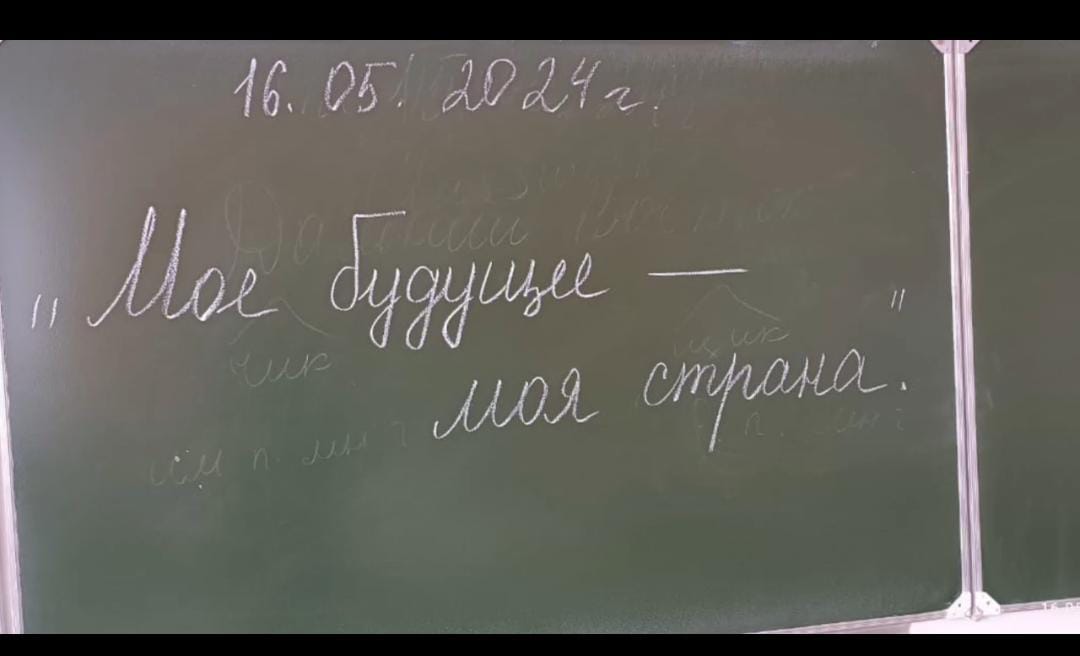 16.05.2024г.
"Мое будущее —
моя страна."
чик
щик